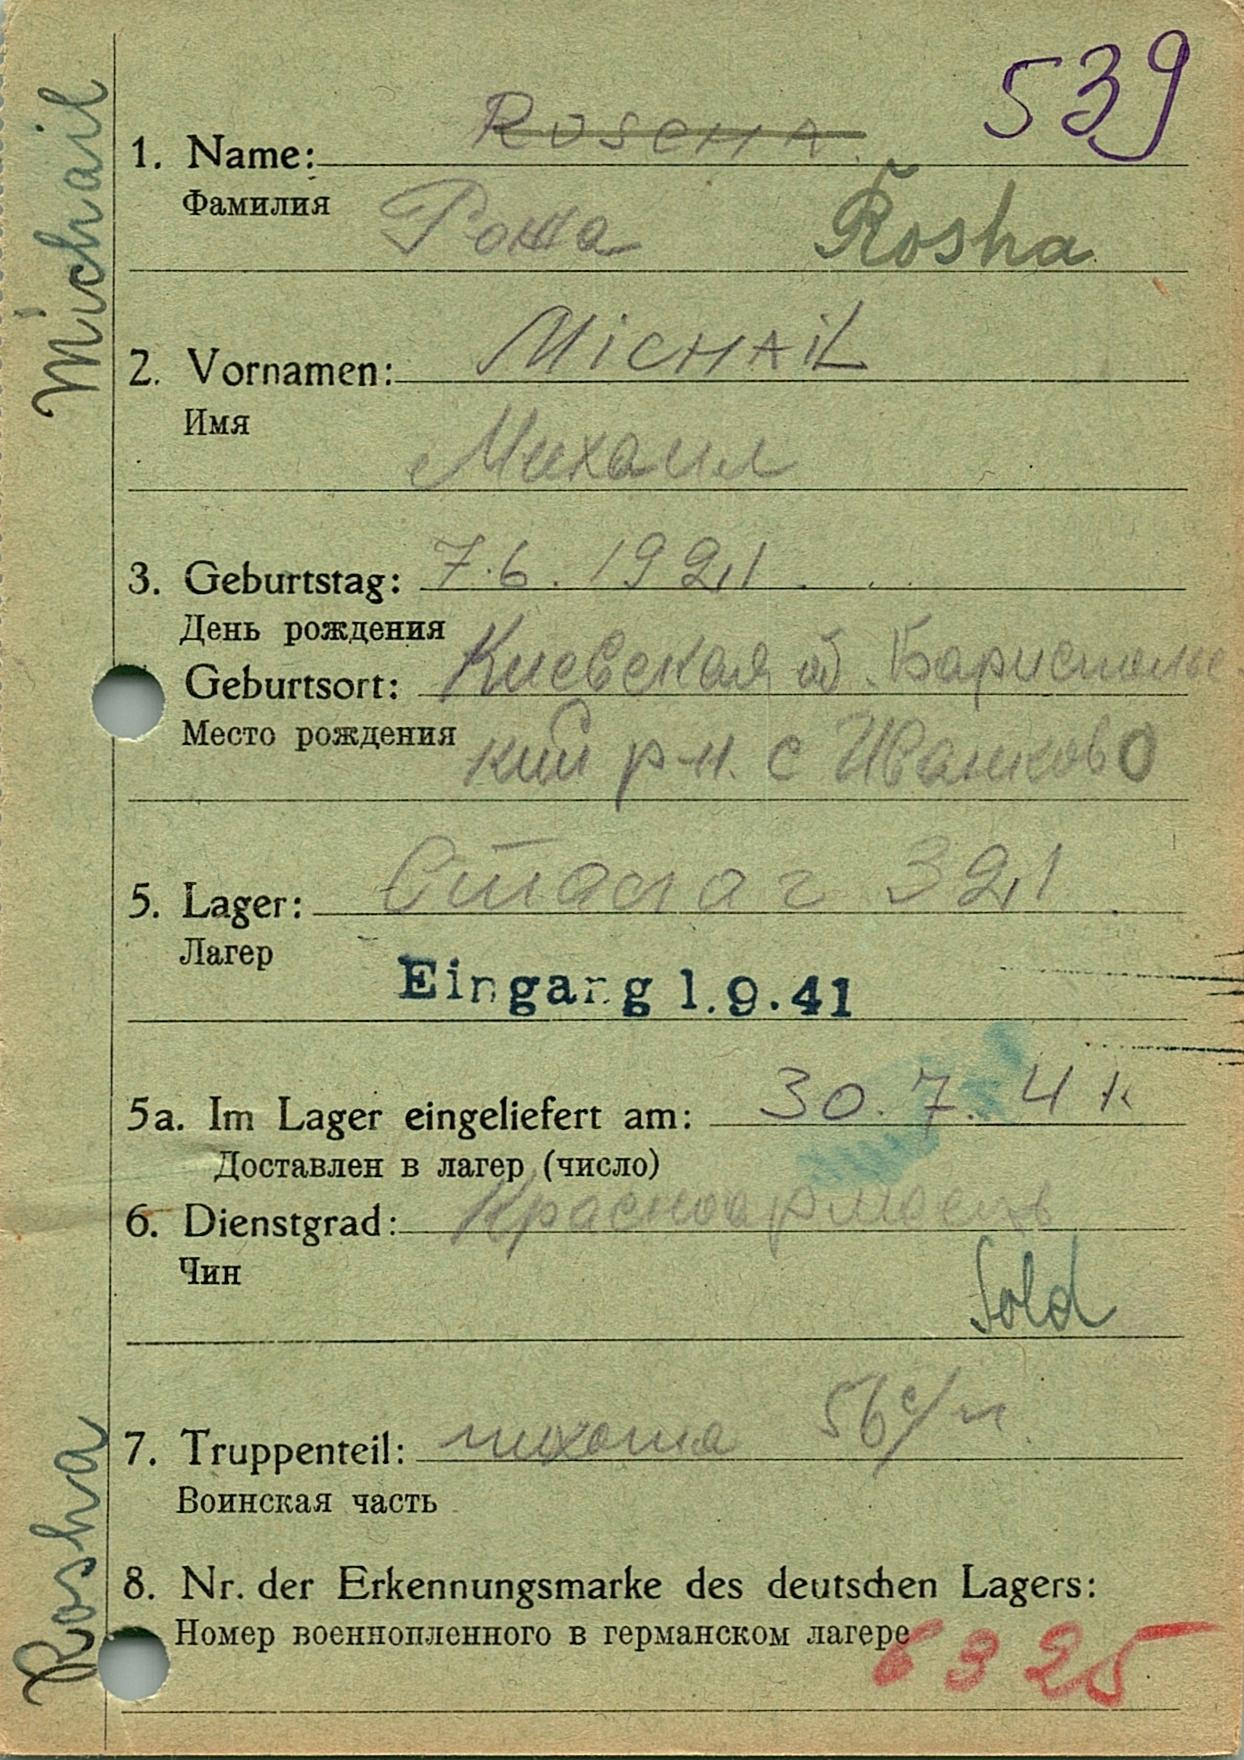 539
1. Name: ROSCHA
Фамилия
Рожа Rosha
Michail
2. Vornamen: MICHAIL
Имя
Михаил
3. Geburtstag: 7.6.1921.
День рождения
Geburtsort: Киевская об. Бариспольс
Место рождения
кий р-н. с Иванково
5. Lager: Сталаг 321
Лагер
Eingang 1.9.41
5a. Im Lager eingeliefert am: 30.7.41
Доставлен в лагер (число)
6. Dienstgrad: Красноармеец
Чин
Sold
7. Truppenteil: пихота 56 с/п
Воинская часть
Rosha
8. Nr. der Erkennungsmarke des deutschen Lagers:
Номер военнопленного в германском лагере
6325